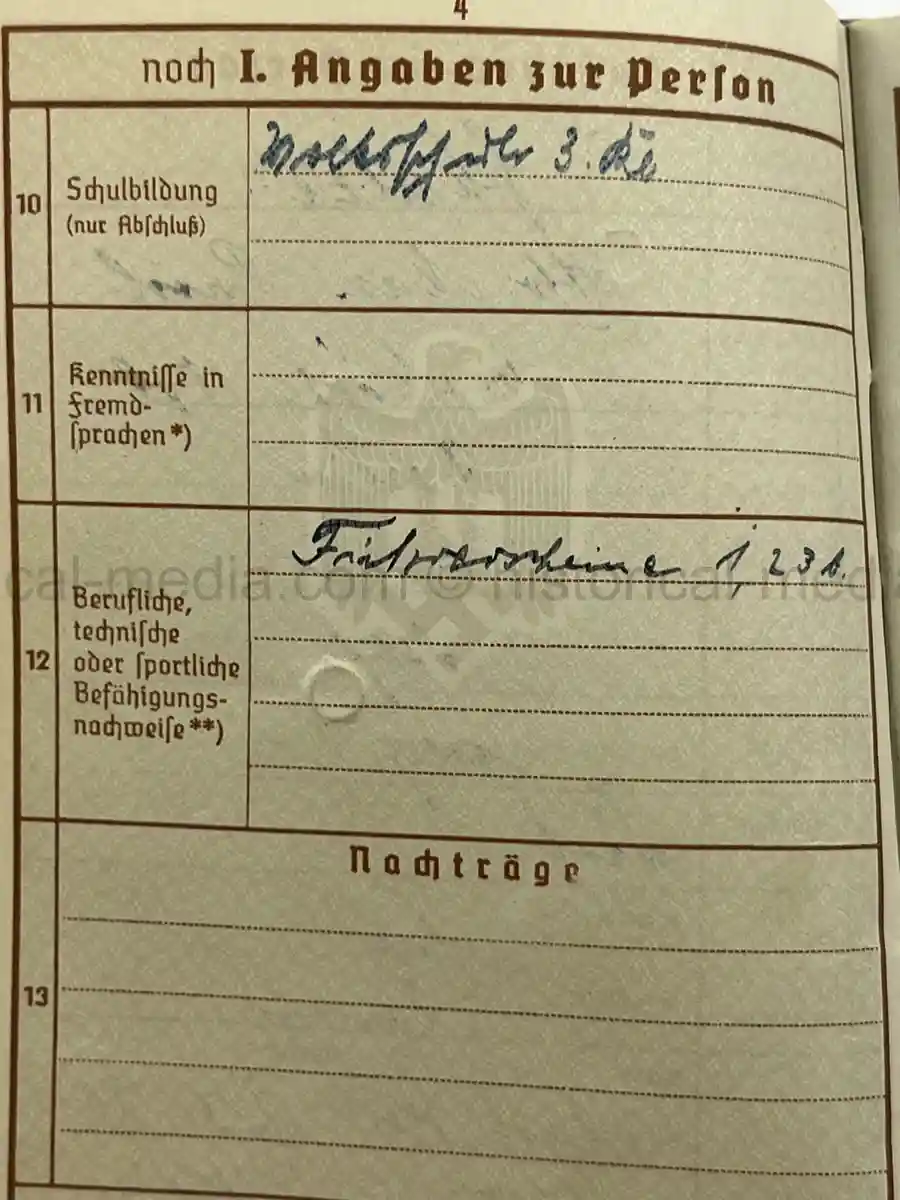 4
noch I. Angaben zur Person
10
Schulbildung
(nur Abschluß)
Volksschule 3. Kl
11
Kenntnisse in
Fremd-
sprachen *)
12
Berufliche,
technische
oder sportliche
Befähigungs-
nachweise **)
Führerscheine 1, 2 3
cal-media.com © historical-media
Nachträge
13